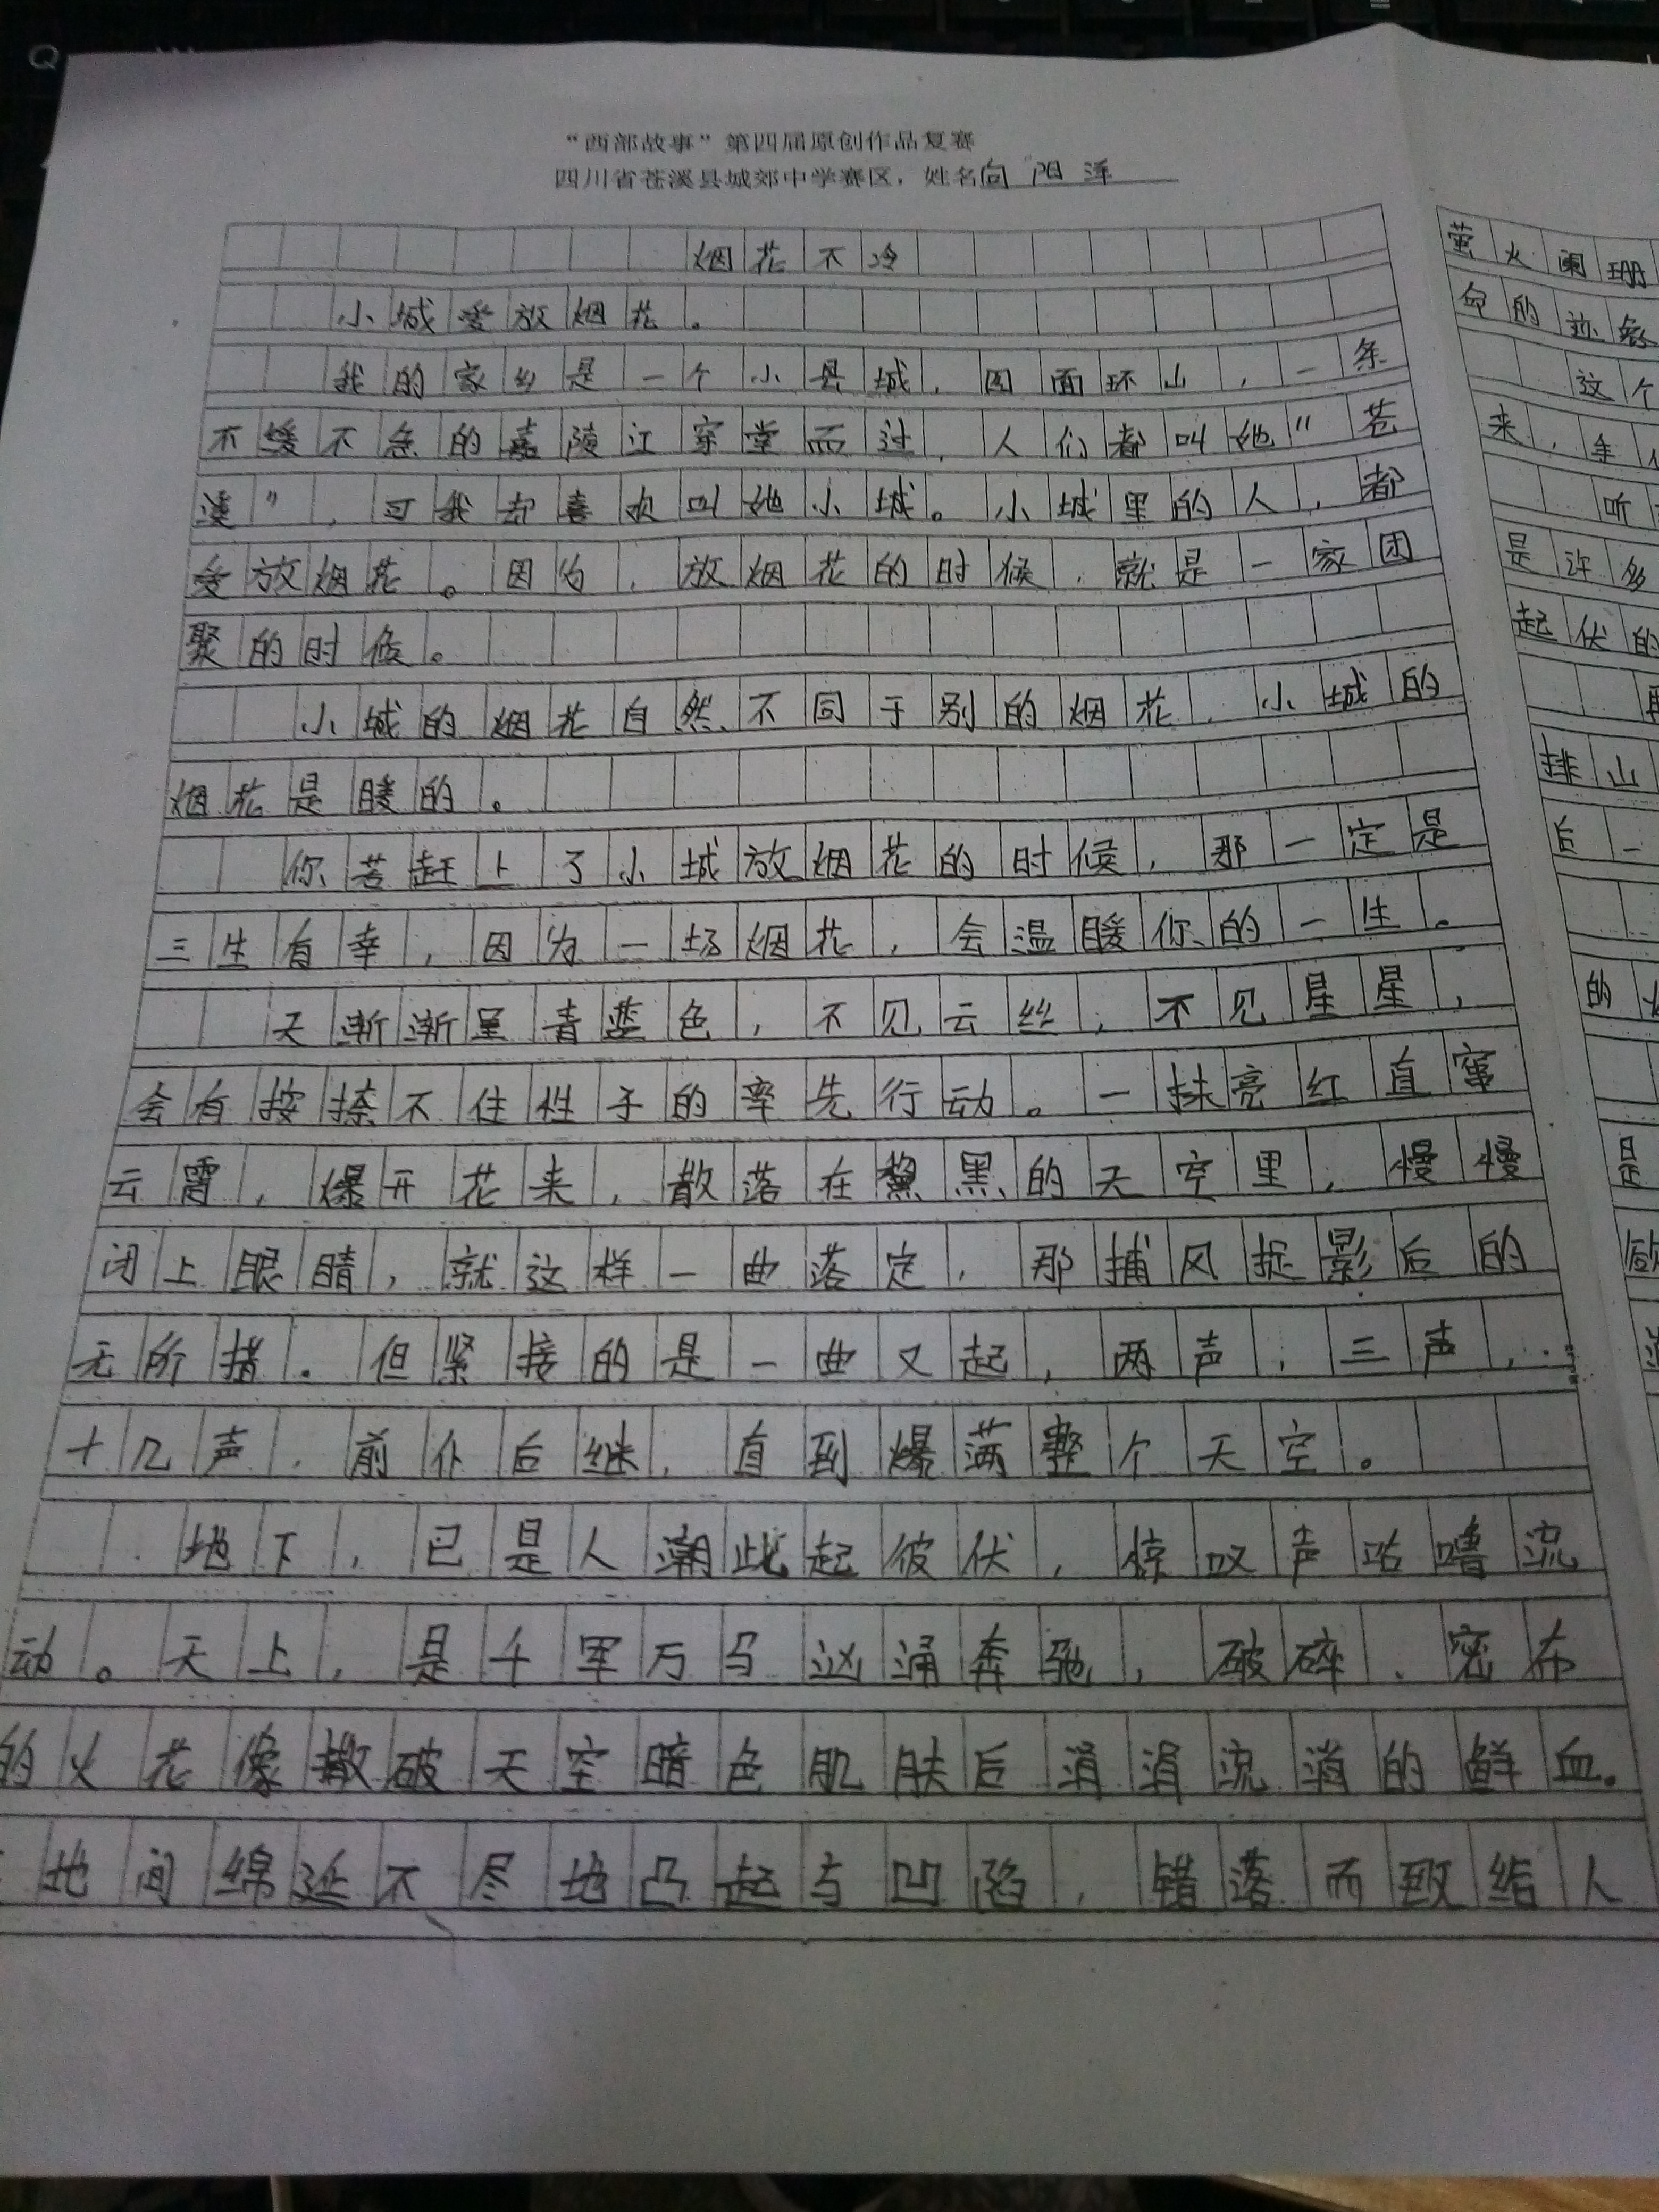 “西部故事”第四届原创作品复赛
四川省苍溪县城郊中学赛区，姓名向阳泽
烟花不冷
小城爱放烟花。
我的家乡是一个小县城，四面环山，一条
不缓不急的嘉陵江穿堂而过，人们都叫她“苍
溪”，可我却喜欢叫她小城。小城里的人，都
爱放烟花。因为，放烟花的时候，就是一家团
聚的时候。
小城的烟花自然不同于别的烟花，小城的
烟花是暖的。
你若赶上了小城放烟花的时候，那一定是
三生有幸，因为一场烟花，会温暖你的一生。
天渐渐呈青蓝色，不见云丝，不见星星，
会有按捺不住性子的率先行动。一抹亮红直窜
云霄，爆开花来，散落在黧黑的天空里，慢慢
闭上眼睛，就这样一曲落定，那捕风捉影后的
无所措。但紧接的是一曲又起，两声，三声，
十几声，前仆后继，直到爆满整个天空。
地下，已是人潮此起彼伏，惊叹声咕噜流
动。天上，是千军万马汹涌奔驰，破碎、密布
的火花像撒破天空暗色肌肤后涓涓流淌的鲜血。
地间绵延不尽地凸起与凹陷，错落而致给人
萤火阑珊
命的迹象
这个
来，
听
是许多
起伏的
排山
后一
的
是